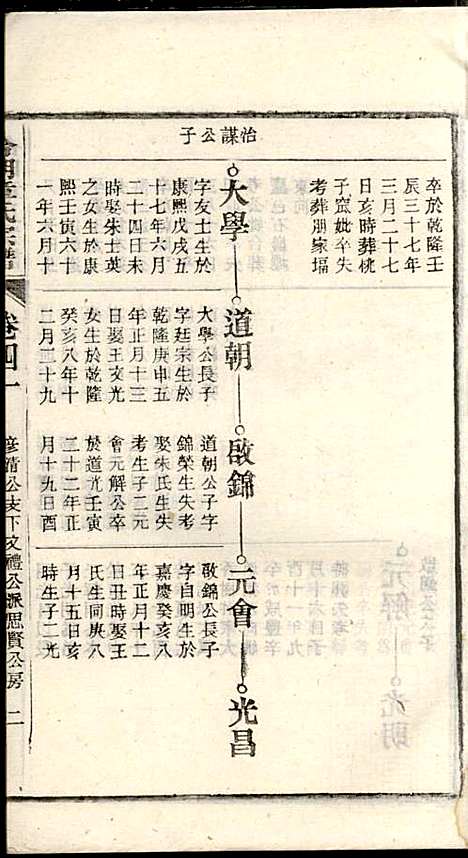 卒於乾隆壬
辰三十七年
三月二十七
日亥時葬桃
子窩妣卒失
考葬朋家塥
子公謀治
大學
道朝
啟錦
元會
光昌
字友士生於
康熙戊戌五
十七年六月
二十四日未
時娶朱士英
之女生於康
熙壬寅六十
一年六月十
大學公長子
字廷宗生於
乾隆庚申五
年正月十三
日娶王文光
女生於乾隆
癸亥八年十
二月二十九
道朝公子字
錦榮生失考
娶朱氏生失
考生子二元
會元解公卒
於道光壬寅
二十二年正
月十九日酉
啟錦公長子
字自明生於
嘉慶癸亥八
年正月十二
日丑時娶王
氏生同庚八
月十五日亥
時生子二光
氏宗譜
卷四一
彥清公支下文禮公派思賢公房
二